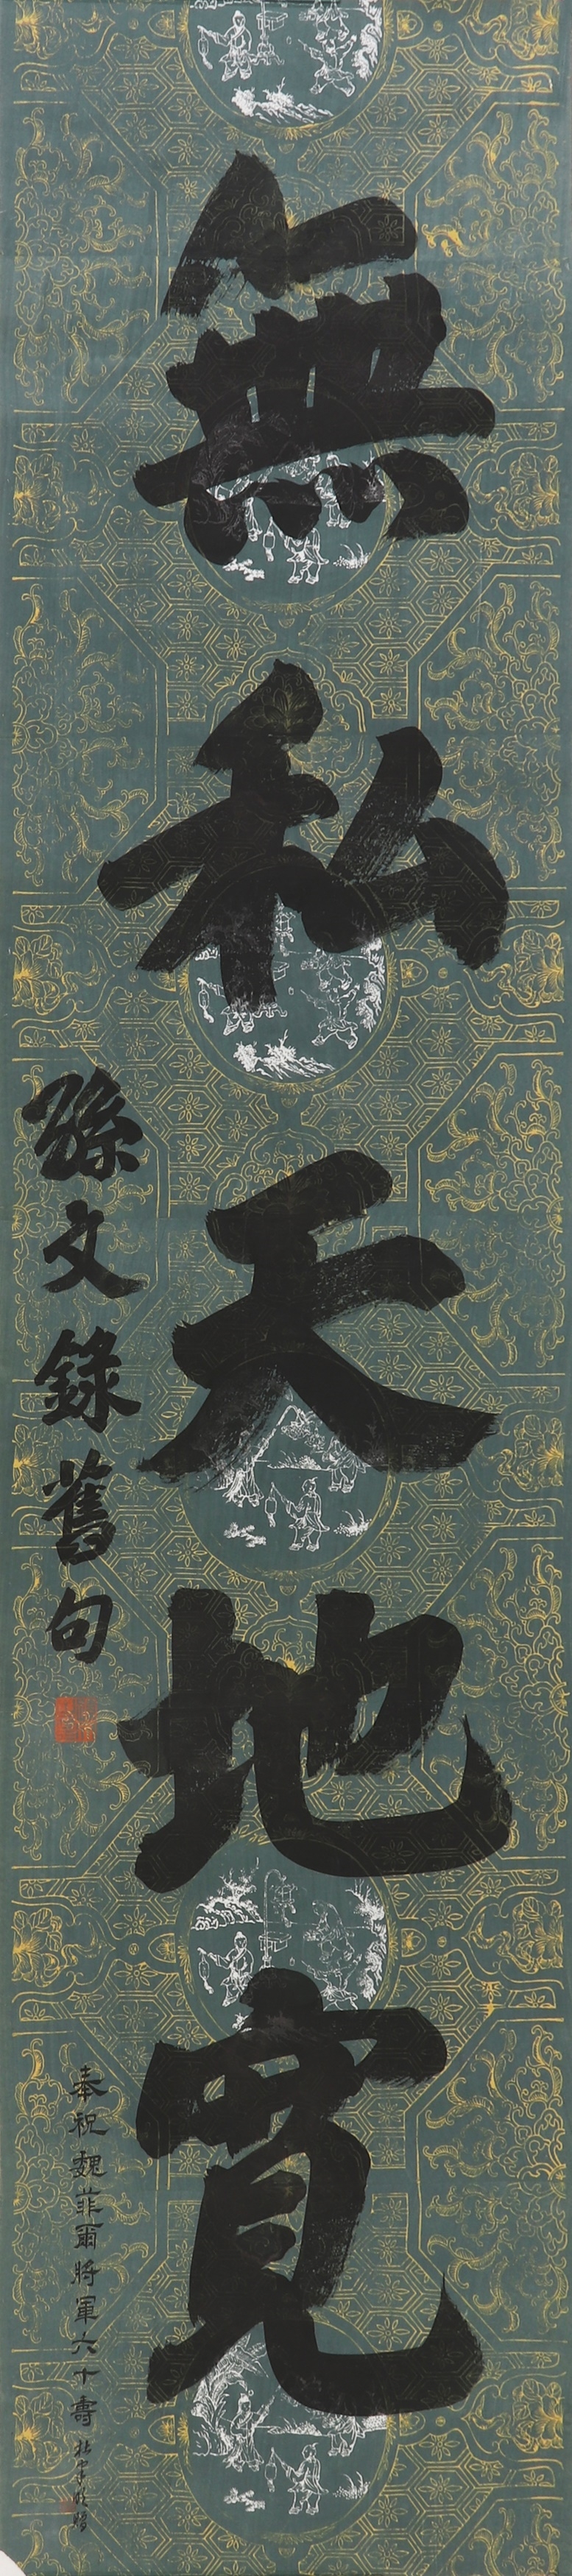 無私天地寬
孫文錄舊句
奉祝魏菲爾將軍六十壽